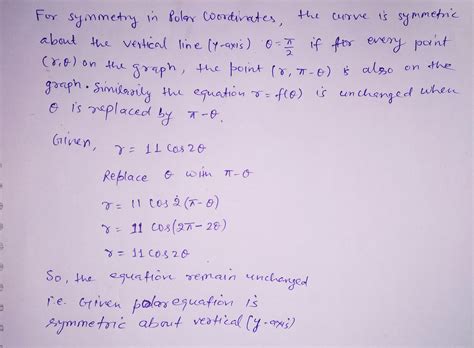 For symmetry in Polar Coordinates, the curve is symmetric
about the vertical line (y-axis) θ = π/2 if for every point
(r, θ) on the graph, the point (r, π-θ) is also on the
graph. Similarily the equation r = f(θ) is unchanged when
θ is replaced by π-θ.
Given, r = 11 cos 2θ
Replace θ with π-θ
r = 11 cos 2(π-θ)
r = 11 cos(2π-2θ)
r = 11 cos 2θ
So, the equation remain unchanged
i.e. Given polar equation is
symmetric about vertical (y-axis)